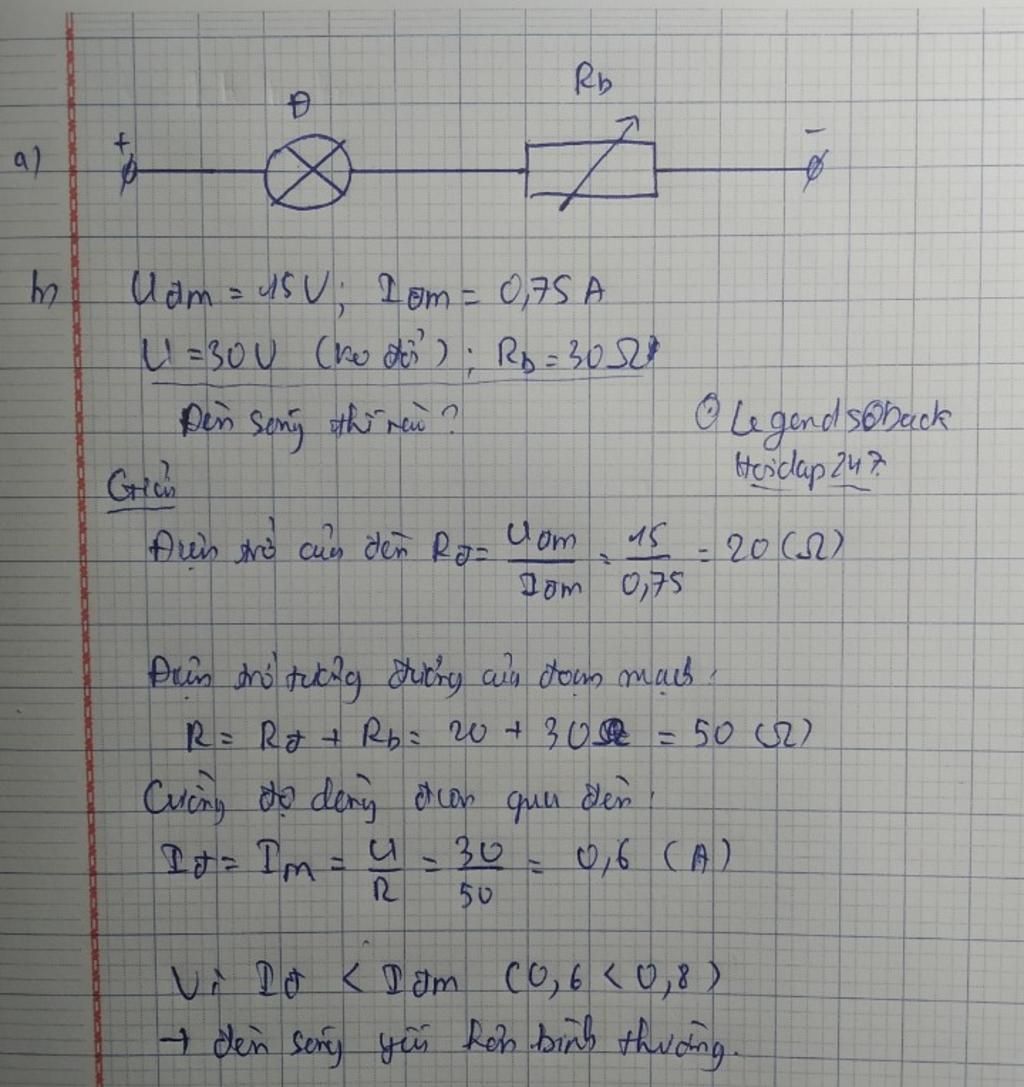 Đ
Rb
a) + -
b) Uđm = 15V; Iđm = 0,75A
U = 30V (ko đổi); Rb = 30Ω
Đèn sáng thế nào?
© Legendsback
Hoidap247
Giải
Điện trở của đèn Rđ = Uđm/Iđm = 15/0,75 = 20 (Ω)
Điện trở tương đương của đoạn mạch:
R = Rđ + Rb = 20 + 30 = 50 (Ω)
Cường độ dòng điện qua đèn:
Iđ = Im = U/R = 30/50 = 0,6 (A)
Vì Iđ < Iđm (0,6 < 0,8)
→ đèn sáng yếu hơn bình thường.